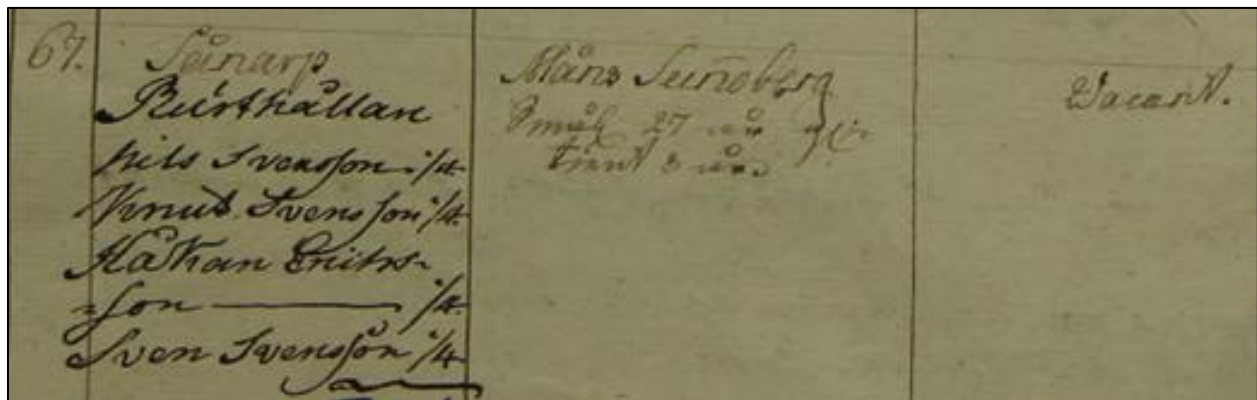 67.
Sånarp
Rusthållan
Nils Svensson 1/4.
Knut Svensson 1/4.
Håkan Erits-
=son — 1/4.
Sven Svensson 1/4
Måns Sundberg
Småл 27 år
tient 3 år
Vacant.